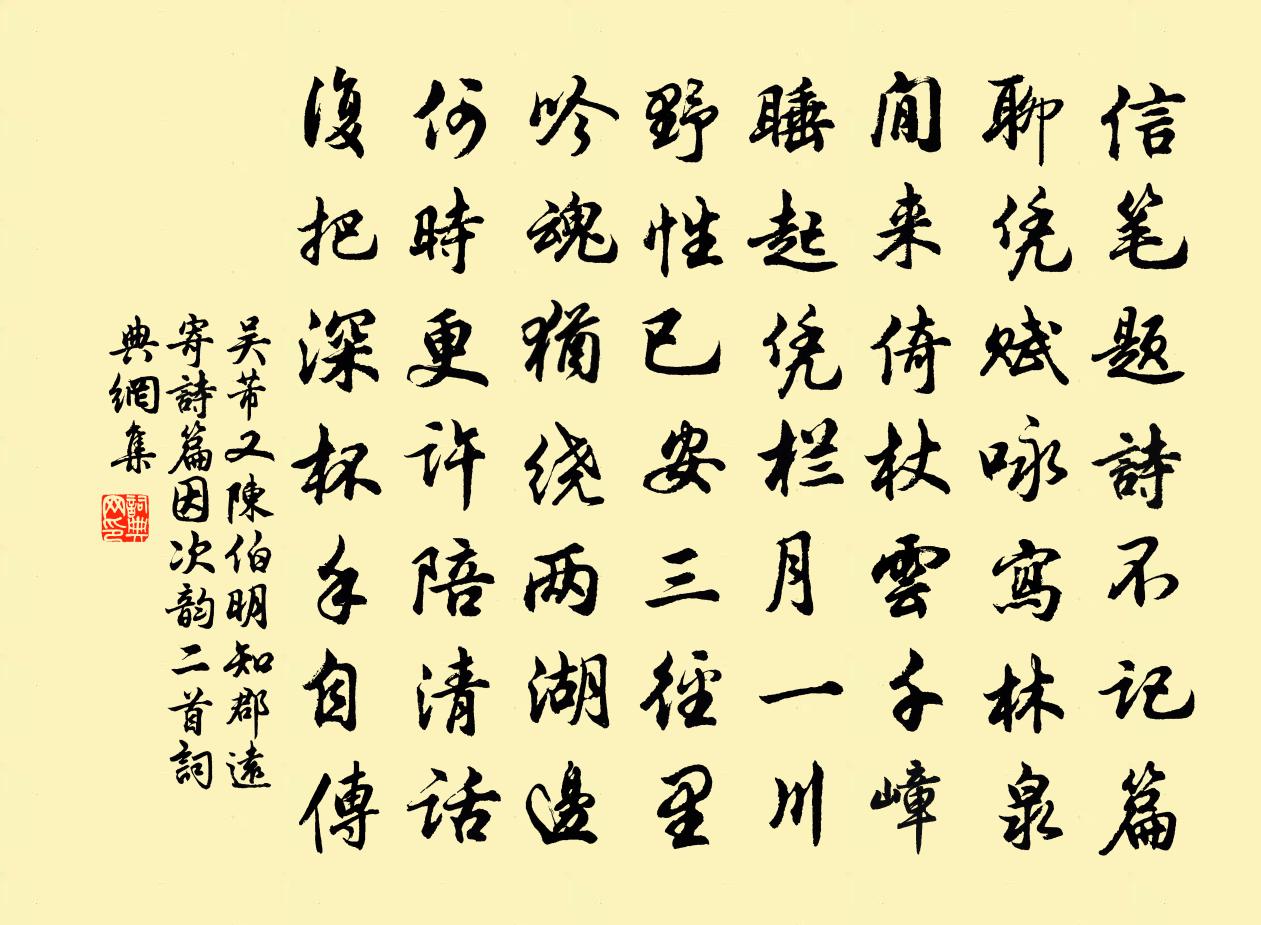 信笔题詩不记篇
聊凭赋咏寫林泉
閒来倚杖雲千嶂
睡起凭栏月一川
野性已安三徑里
吟魂猶绕两湖邊
何時更许陪清话
復把深杯手自傳
吴芾又陳伯明知郡遠
寄詩篇因次韵二首詞
典網集
詞典
网印